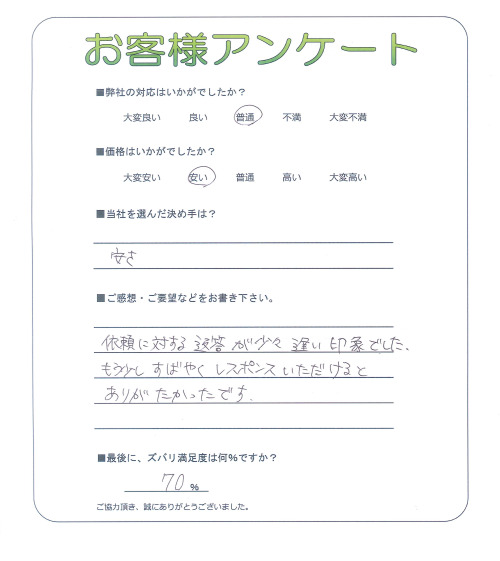 お客様アンケート
■弊社の対応はいかがでしたか？
大変良い 良い 普通 不満 大変不満
■価格はいかがでしたか？
大変安い 安い 普通 高い 大変高い
■当社を選んだ決め手は？
安さ
■ご感想・ご要望などをお書き下さい。
依頼に対する返答が少々遅い印象でした、
もう少しすばやくレスポンスいただけると
ありがたかったです.
■最後に、ズバリ満足度は何％ですか？
70 %
ご協力頂き、誠にありがとうございました。